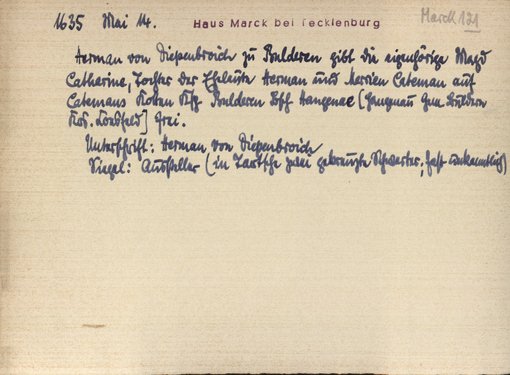 1635 Mai 14. Haus Marck bei Tecklenburg Marck 121
Herman von Diepenbroich zu Bulderen gibt die eigenhörige Magd
Catharine, Tochter der Eheleute Herman und Merrien Cateman auf
Catemans Kotten Ksp. Bulderen Bschft. Hangenae [Hangenau Gem. Buldern
Krs. Coesfeld] frei.
Unterschrift: Herman von Diepenbroich
Siegel: Aussteller (in Tartsche zwei gekreuzte Schwerter, fast unkenntlich)